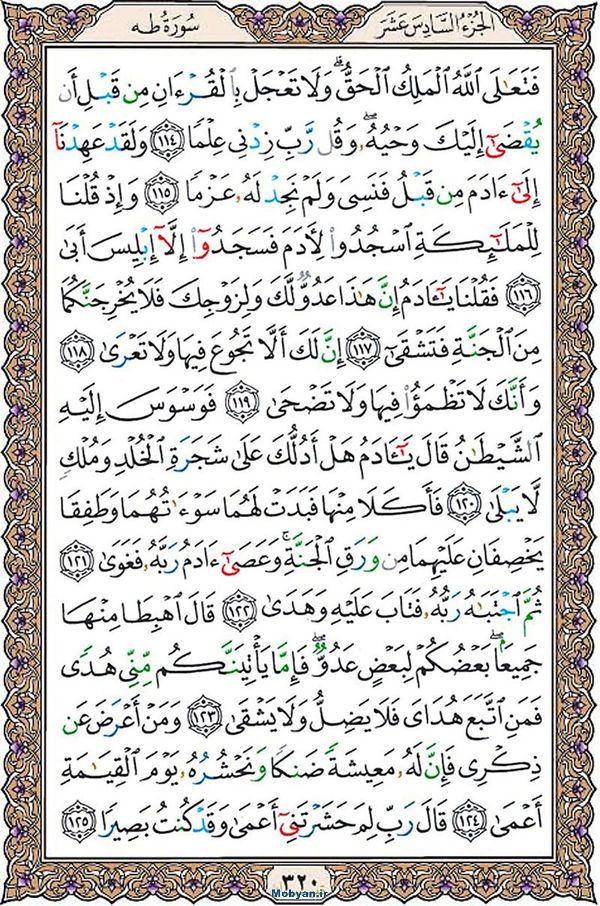 الجزء السادس عشر
سورة طه
فَتَعَٰلَى ٱللَّهُ ٱلْمَلِكُ ٱلْحَقُّ ۗ وَلَا تَعْجَلْ بِٱلْقُرْءَانِ مِن قَبْلِ أَن
يُقْضَىٰٓ إِلَيْكَ وَحْيُهُۥ ۖ وَقُل رَّبِّ زِدْنِى عِلْمًا ١١٤ وَلَقَدْ عَهِدْنَآ
إِلَىٰٓ ءَادَمَ مِن قَبْلُ فَنَسِىَ وَلَمْ نَجِدْ لَهُۥ عَزْمًا ١١٥ وَإِذْ قُلْنَا
لِلْمَلَٰٓئِكَةِ ٱسْجُدُوا۟ لِءَادَمَ فَسَجَدُوٓا۟ إِلَّآ إِبْلِيسَ أَبَىٰ
١١٦ فَقُلْنَا يَٰٓـَٔادَمُ إِنَّ هَٰذَا عَدُوٌّ لَّكَ وَلِزَوْجِكَ فَلَا يُخْرِجَنَّكُمَا
مِنَ ٱلْجَنَّةِ فَتَشْقَىٰٓ ١١٧ إِنَّ لَكَ أَلَّا تَجُوعَ فِيهَا وَلَا تَعْرَىٰ ١١٨
وَأَنَّكَ لَا تَظْمَؤُا۟ فِيهَا وَلَا تَضْحَىٰ ١١٩ فَوَسْوَسَ إِلَيْهِ
ٱلشَّيْطَٰنُ قَالَ يَٰٓـَٔادَمُ هَلْ أَدُلُّكَ عَلَىٰ شَجَرَةِ ٱلْخُلْدِ وَمُلْكٍ
لَّا يَبْلَىٰ ١٢٠ فَأَكَلَا مِنْهَا فَبَدَتْ لَهُمَا سَوْءَٰتُهُمَا وَطَفِقَا
يَخْصِفَانِ عَلَيْهِمَا مِن وَرَقِ ٱلْجَنَّةِ ۚ وَعَصَىٰٓ ءَادَمُ رَبَّهُۥ فَغَوَىٰ ١٢١
ثُمَّ ٱجْتَبَٰهُ رَبُّهُۥ فَتَابَ عَلَيْهِ وَهَدَىٰ ١٢٢ قَالَ ٱهْبِطَا مِنْهَا
جَمِيعًۢا ۖ بَعْضُكُمْ لِبَعْضٍ عَدُوٌّ ۖ فَإِمَّا يَأْتِيَنَّكُم مِّنِّى هُدًى
فَمَنِ ٱتَّبَعَ هُدَاىَ فَلَا يَضِلُّ وَلَا يَشْقَىٰ ١٢٣ وَمَنْ أَعْرَضَ عَن
ذِكْرِى فَإِنَّ لَهُۥ مَعِيشَةً ضَنكًا وَنَحْشُرُهُۥ يَوْمَ ٱلْقِيَٰمَةِ
أَعْمَىٰ ١٢٤ قَالَ رَبِّ لِمَ حَشَرْتَنِىٓ أَعْمَىٰ وَقَدْ كُنتُ بَصِيرًا ١٢٥
٣٢٠
Mobyan.ir